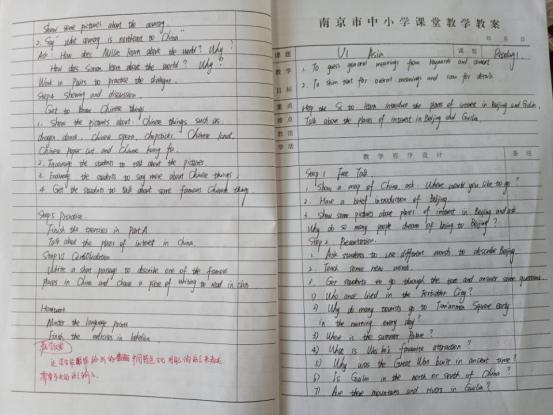 Show some pictures about the country.
2. Say "which country is northeast to China"
Ask: How does Millie learn about the world? Why?
How does Simon learn about the world? Why?
Work in pairs to practise the dialogue.
Step4 Showing and discussion.
Get to know Chinese things
1. Show the pictures about Chinese things such as:
dragon dance, Chinese opera, chopsticks, Chinese food,
Chinese paper cut and Chinese kung fu.
2. Encourage the students to talk about the pictures.
3. Encourage the students to say more about Chinese things.
4. Get the students to talk about some famous Chinese thing.
Step5 Practice.
Finish the exercises in Part A
Talk about the places of interest in China.
Step VI Consolidation
Write a short passage to describe one of the famous
places in China and choose a piece of writing to read in class
Homework
Master the language points
Finish the exercises in
南京市中小学课堂教学教案
课题 U1 Asia 课型 Reading 1
教学 1. To guess general meanings from keywords and context
目标 2. To skim text for overall meanings and scan for details.
重点 Help the Ss to learn introduce the places of interest in Beijing and Guilin.
难点 Talk about the places of interest in Beijing and Guilin.
教法
学法
教学程序设计 备注
Step 1 Free Talk
1. Show a map of China, ask: Where would you like to go?
2. Have a brief introduction of Beijing.
4. Show some pictures about places of interest in Beijing and ask
Why do so many people dream of going to Beijing?
Step 2 Presentation
1. Ask students to use different words to describe Beijing
2. Teach some new words.
3. Get students to go through the text and answer some questions.
1) Who once lived in the Forbidden City?
2) Why do many tourists go to Tian'anmen Square early
in the morning every day?
3) Where is the Summer Palace?
4) What is Wei's favourite attraction?
5) Why was the Great Wall built in ancient time?
6) Is Guilin in the north or south of China?
7) Are there mountains and rivers in Guilin?